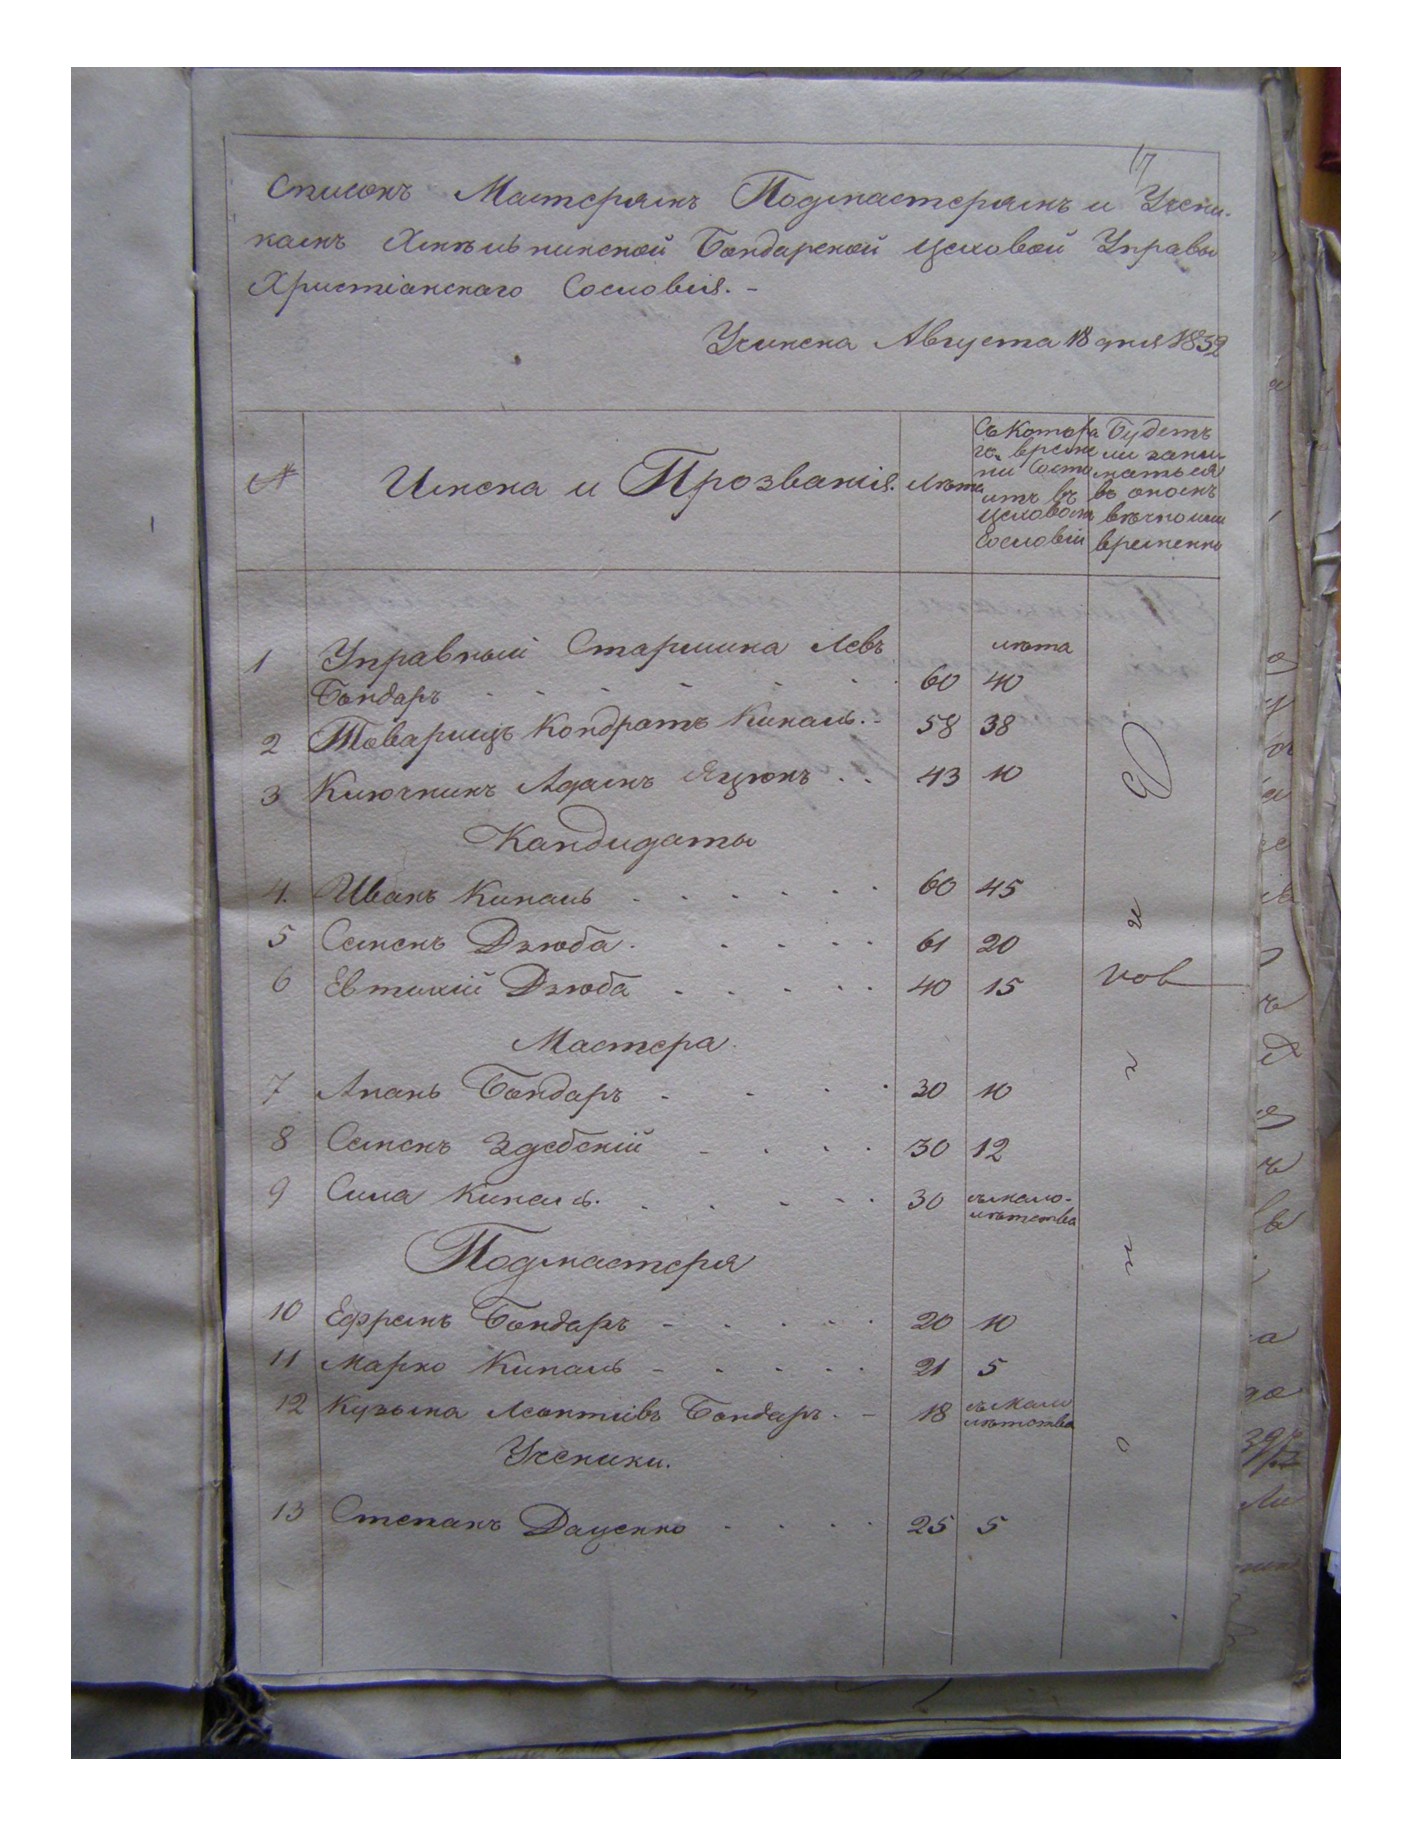 17
Списокъ Мастерамъ Подмастерамъ и Учени-
камъ Хмѣльникской Бондарской Цеховой Управы
Христіанскаго Сословія. -
Учинена Августа 18 дня 1852
№ Имена и Прозванія. Лѣта Съ котора
го време
ни состо
итъ въ
Цеховомъ
Сословіи Будетъ
ли зани
маться
въ ономъ
вѣчно или
временно
1 Управный Старшина Левъ лѣта
Бондаръ 60 40
2 Товарищъ Кондратъ Кипаль. - 58 38
3 Ключникъ Адамъ Яцюкъ . . 43 10
Кандидаты
4. Иванъ Кипаль 60 45
5 Семенъ Дзюба. 61 20
6 Евтихій Дзюба 40 15
Мастера.
7 Ананъ Бондаръ 30 10
8 Семенъ Здебскій 30 12
9 Сила Кипаль. 30 съ мало-
лѣтства
Подмастеря
10 Ефремъ Бондаръ 20 10
11 Марко Кипаль 21 5
12 Кузьма Леонтіевъ Бондаръ. - 18 съ мало
лѣтства
Ученики.
13 Степанъ Даценко 25 5